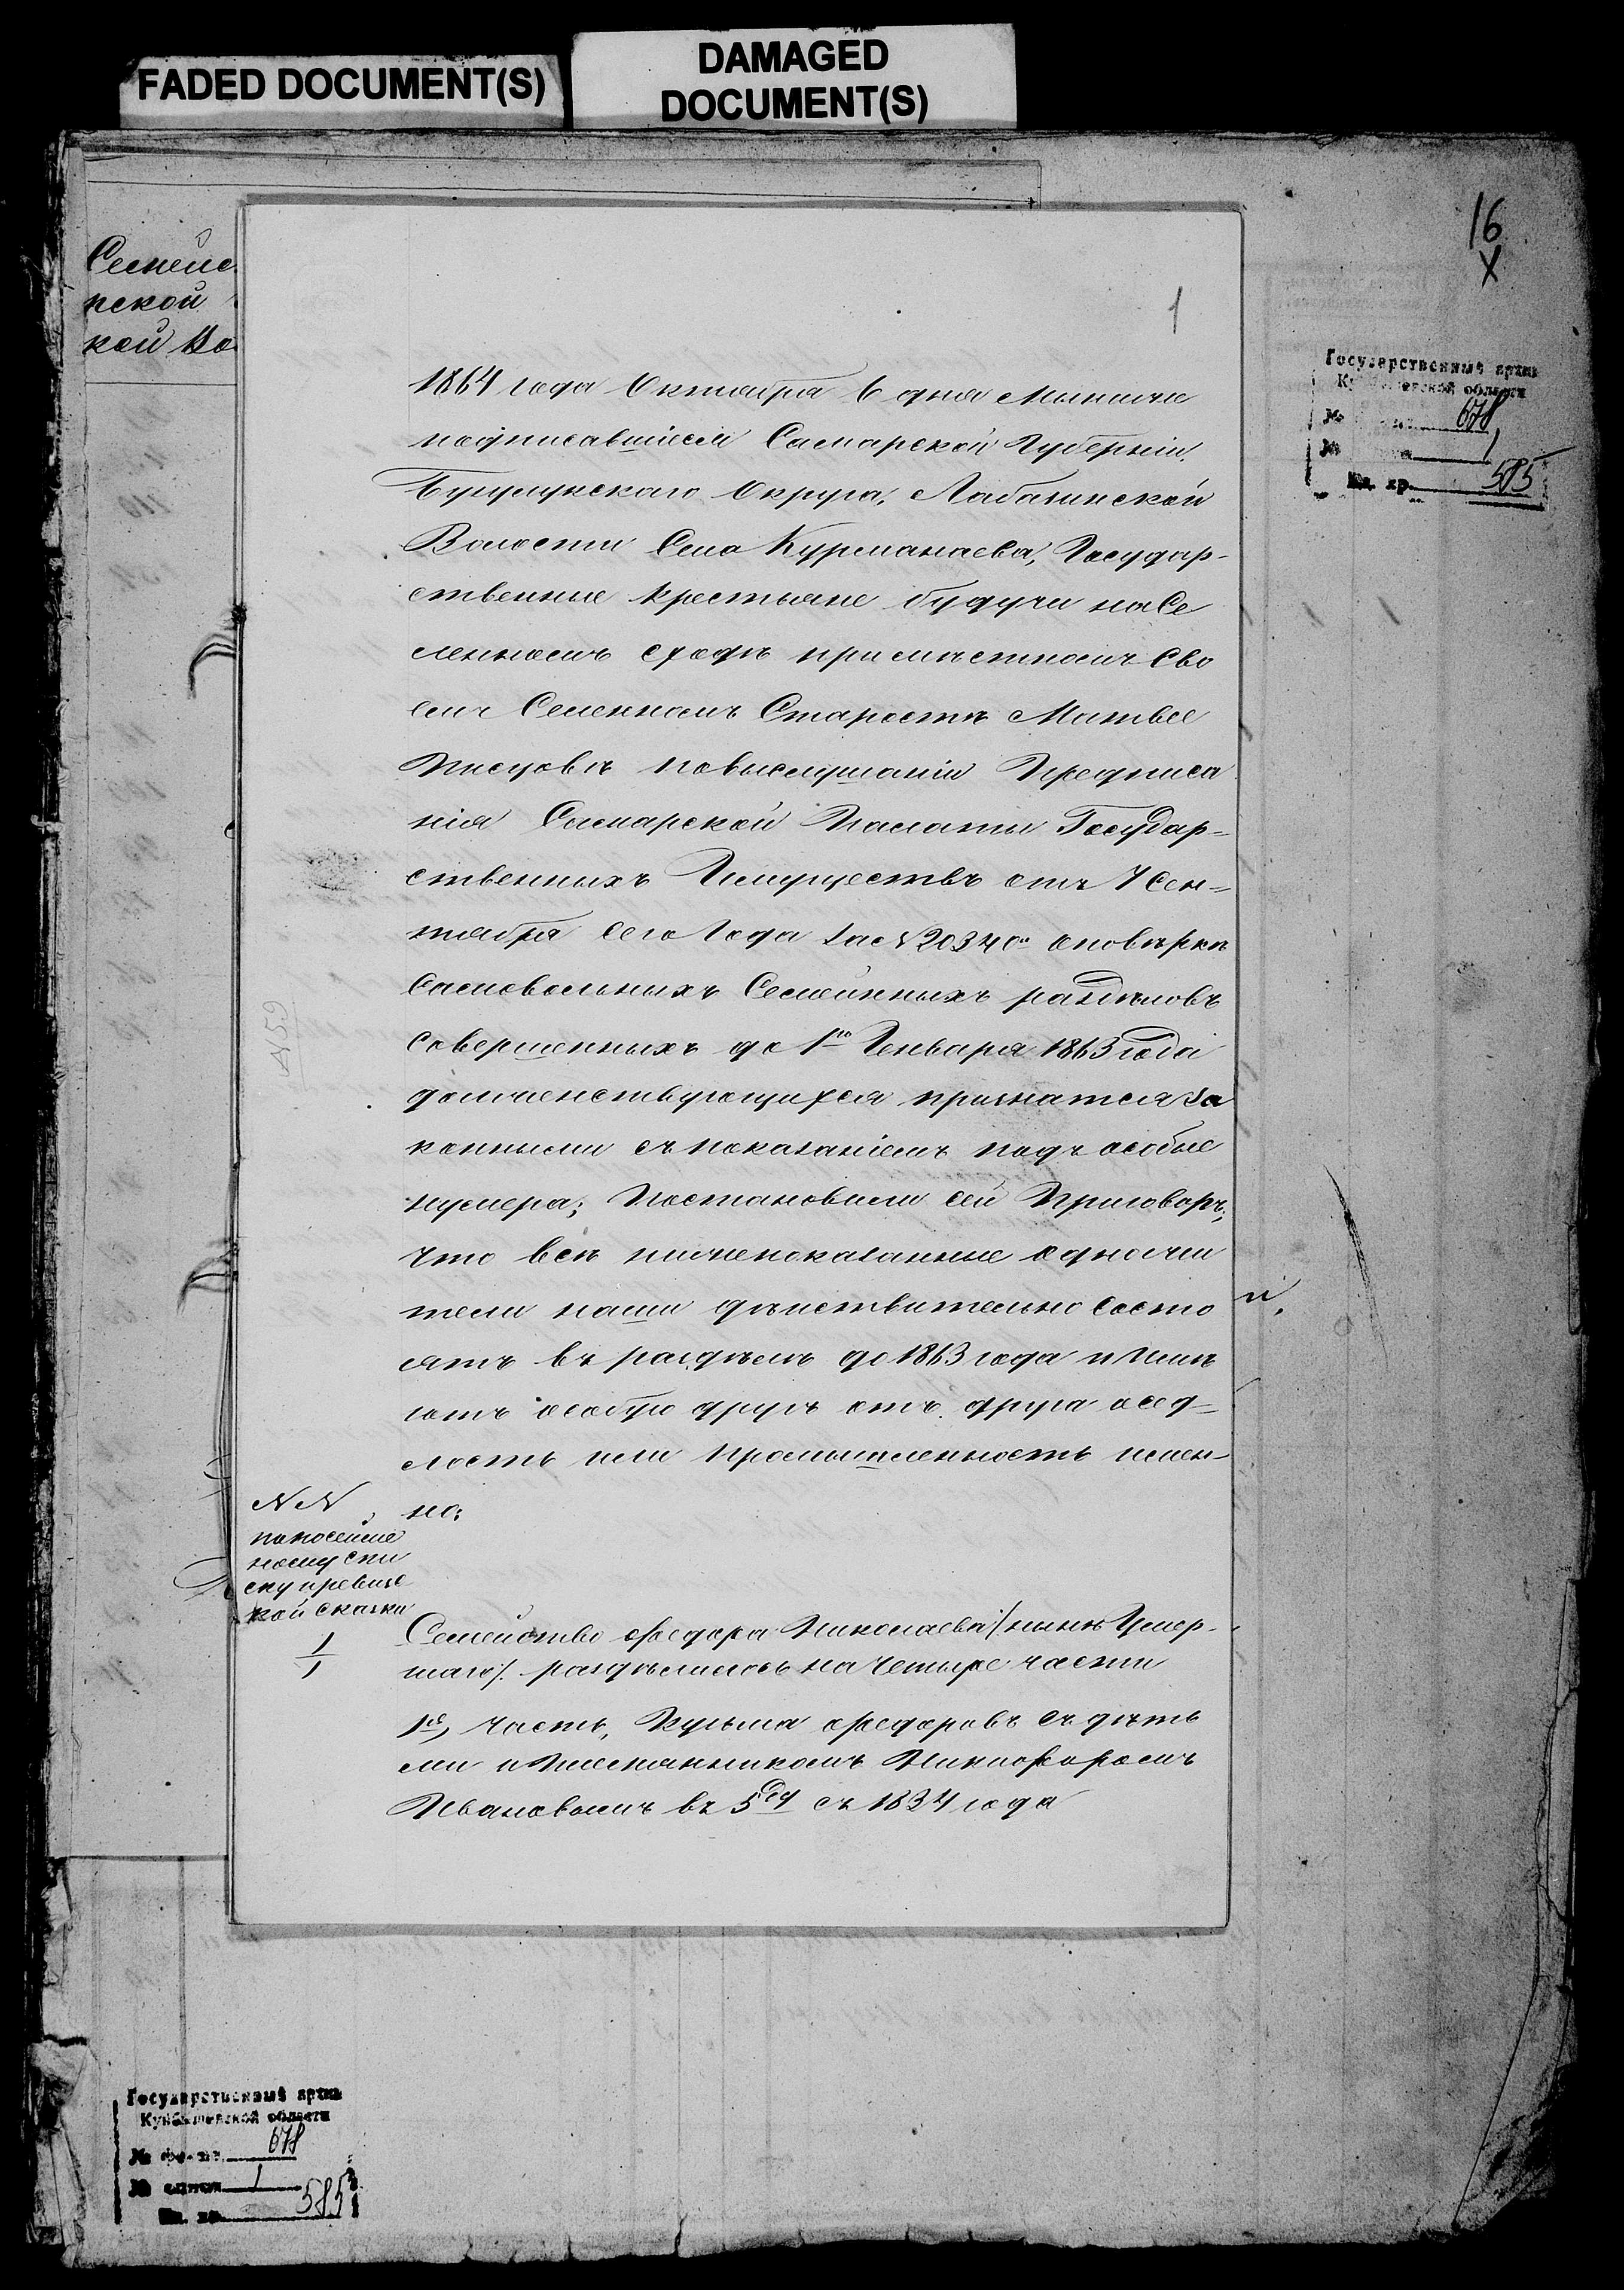 FADED DOCUMENT(S)
DAMAGED
DOCUMENT(S)
16
X
1
Семейс
пской
кой Во
Государственный архив
Куйбышевской области
№ 678
№ 1
Ед. хр. 585
1864 года Октября 6 дня Мы ниже
подписавшіеся Самарской Губерніи,
Бузулукскаго Округа, Лабазинской
Волости Села Курманаева, Государ-
ственные крестьяне будучи на Се
ленномъ сходѣ при мѣстномъ Сво
емъ Селенномъ Старостѣ Матвее
повыслушаніи Предписа
нія Самарской Палаты Государ-
ственныхъ Имуществъ отъ 7 Сен-
тября сего Года за №20340м оповѣркѣ
Самовольныхъ Семейныхъ раздѣловъ
Совершенныхъ до 1го Генваря 1863 года
долженствующихся признатся за
конными съ показаніемъ подъ особые
нумера; Постановили сей Приговоръ;
что всѣ нижепоказанные Одножи
тели наши дѣиствительно Состо
ятъ въ раздѣлъ до 1863 года и Имѣ
ютъ особую другъ отъ друга осед-
лость или промышленность имен-
но:
NN
по
ному спи
ску и ревизс
кой сказки
1/1
Семейство Федора Николаева /нынѣ Умер-
шаго/. раздѣлилось на Четыре части
1е, часть, Кузьма Федоровъ съ дѣть
ми и Племянникомъ Никифоромъ
Ивановымъ въ 5 съ 1834 года
Государственный архив
Куйбышевской области
№ фонда 678
№ описи 1
Ед. хр. 585